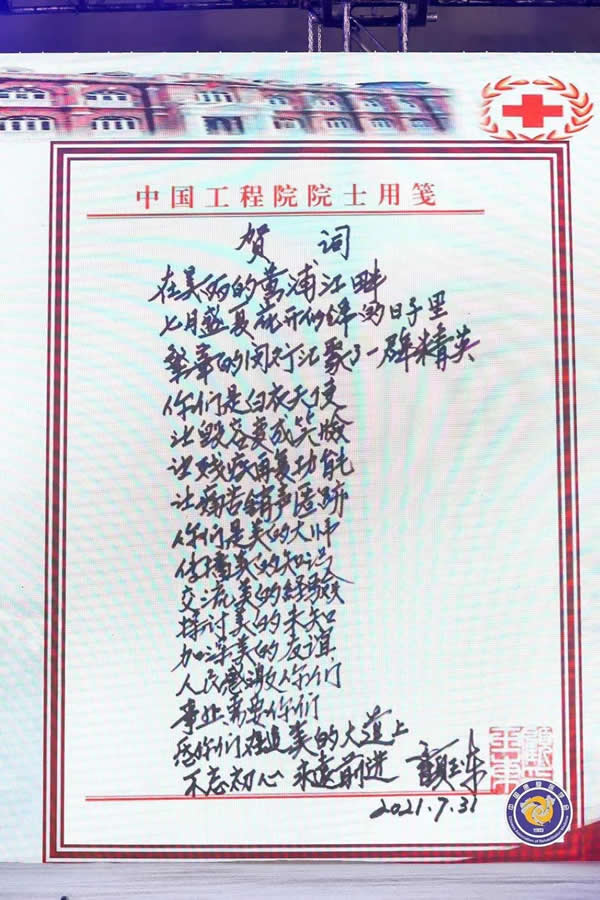 中国工程院院士用笺
贺 词
在美丽的黄浦江畔
七月盛夏花开似锦的日子里
繁华的闵行汇聚了一群精英
你们是白衣天使
让毁容变成笑脸
让残疾再复功能
让痛苦销声匿迹
你们是美的大师
传播美的知识
交流美的经验
探讨美的未知
加深美的友谊
人民感激你们
事业需要你们
愿你们在追美的大道上
不忘初心 永远前进
2021.7.31